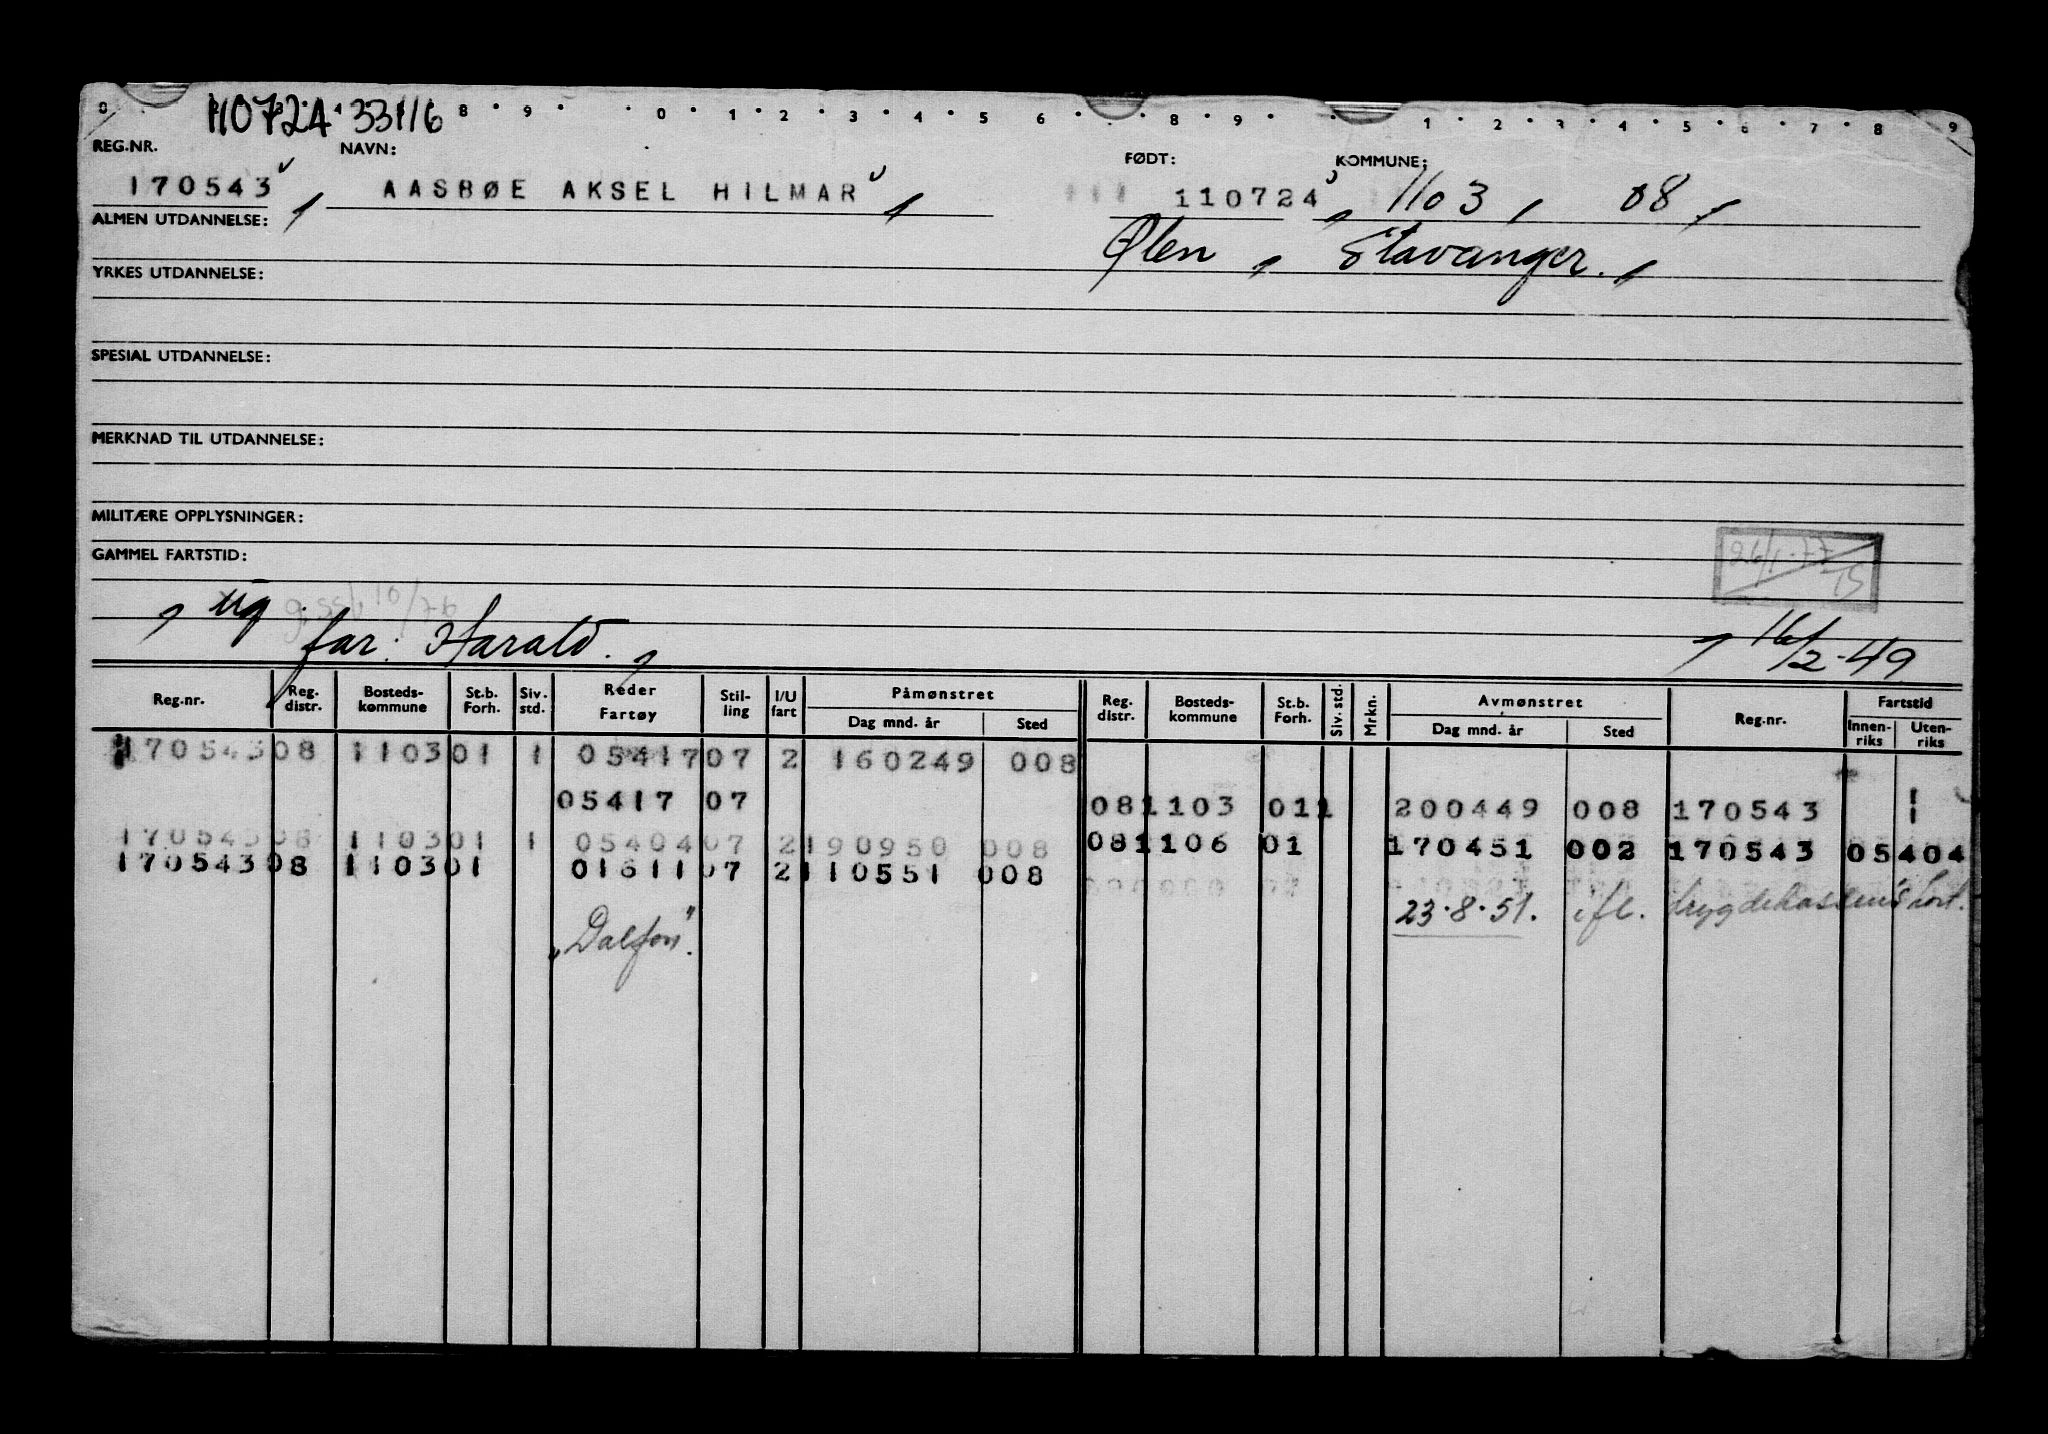 110724 33116
REG.NR. NAVN: FØDT: KOMMUNE:
170543 AASBØE AKSEL HILMAR 110724 1103, 08,
ALMEN UTDANNELSE:
Ølen, Stavanger.,
YRKES UTDANNELSE:
SPESIAL UTDANNELSE:
MERKNAD TIL UTDANNELSE:
MILITÆRE OPPLYSNINGER:
GAMMEL FARTSTID:
26/1-77
ug
far: Harald.,
16/2-49
Reg.nr. Reg. distr. Bosteds-kommune St.b. Forh. Siv. std. Reder Fartøy Stil-ling I/U fart Påmønstret Dag mnd. år Sted Reg. distr. Bosteds-kommune St.b. Forh. Siv. std. Mrkn. Avmønstret Dag mnd. år Sted Reg.nr. Fartstid Innen-riks Uten-riks
170543 08 1103 01 1 05417 07 2 160249 008
05417 07 08 1103 01 1 200449 008 170543 1
170543 08 1103 01 1 05404 07 2 190950 008 08 1106 01 170451 002 170543 05404
170543 08 1103 01 01611 07 2 110551 008
"Dalfonn". 23.8.51. ifl. trygdekassens kort.